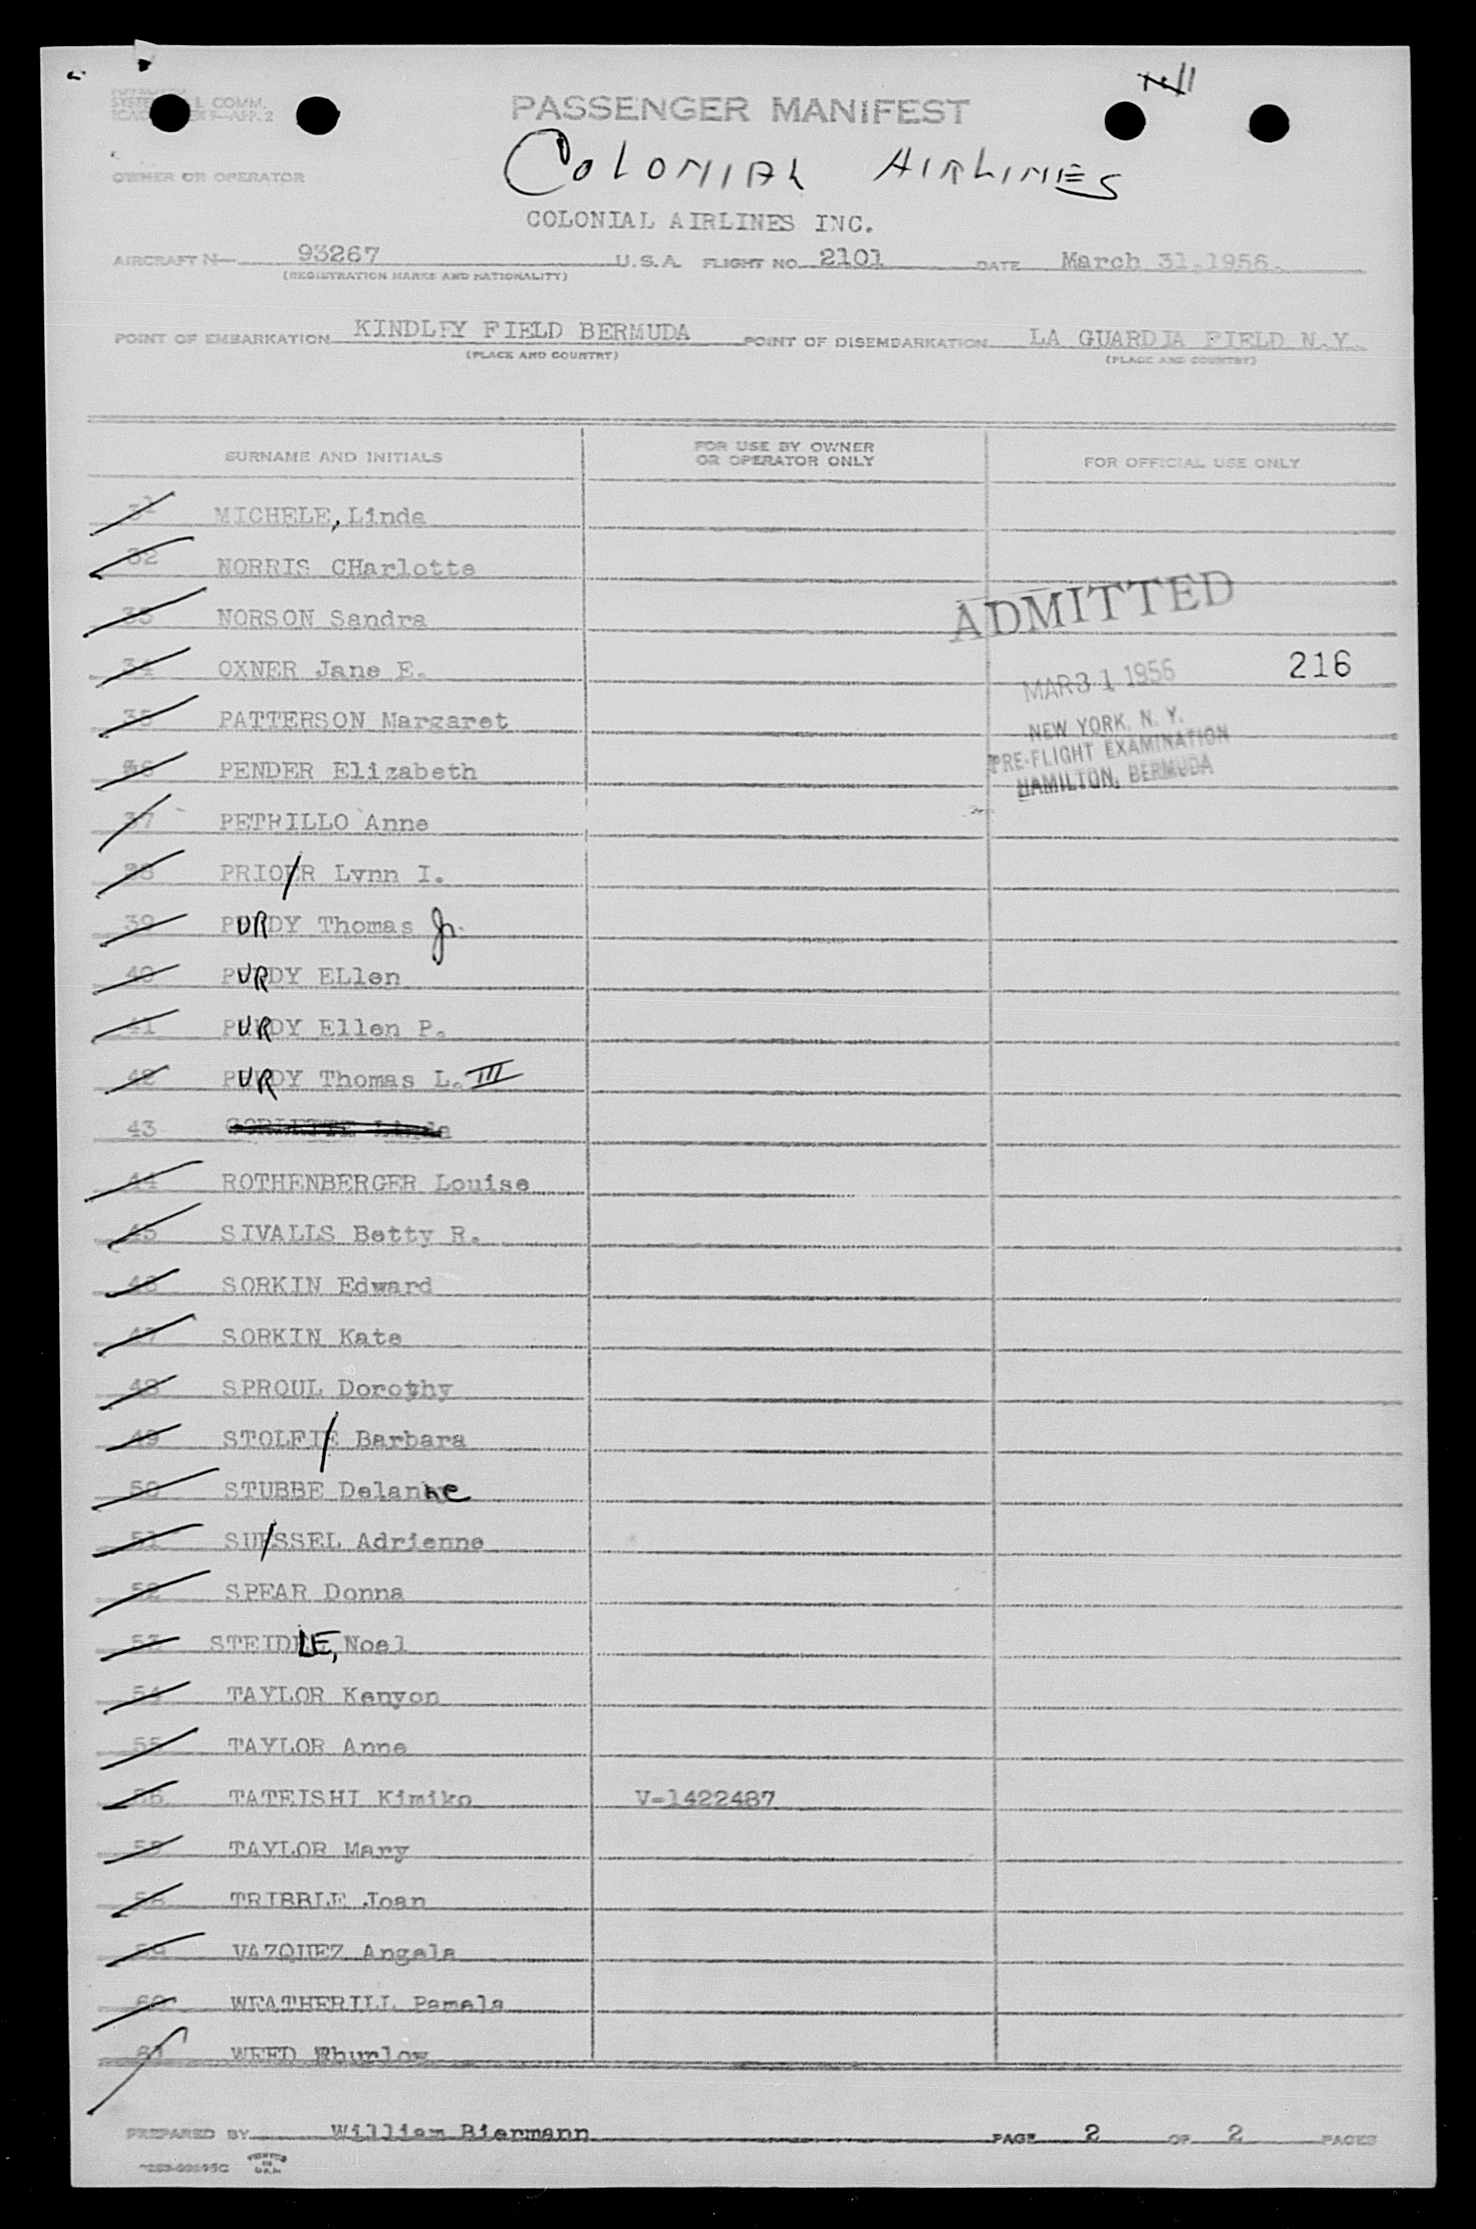 PASSENGER MANIFEST
OWNER OR OPERATOR
COLONIAL AIRLINES
COLONIAL AIRLINES INC.
AIRCRAFT N— 93267 U.S.A. FLIGHT NO. 2101 DATE March 31,1956.
(REGISTRATION MARKS AND NATIONALITY)
POINT OF EMBARKATION KINDLEY FIELD BERMUDA POINT OF DISEMBARKATION LA GUARDIA FIELD N.Y.
(PLACE AND COUNTRY) (PLACE AND COUNTRY)
SURNAME AND INITIALS FOR USE BY OWNER OR OPERATOR ONLY FOR OFFICIAL USE ONLY
31 MICHELE, Linda
32 NORRIS CHarlotte
33 NORSON Sandra
ADMITTED
34 OXNER Jane E. 216
MAR 31 1956
35 PATTERSON Margaret
NEW YORK, N. Y.
PRE-FLIGHT EXAMINATION
36 PENDER Elizabeth
HAMILTON, BERMUDA
37 PETRILLO Anne
38 PRIOER Lynn I.
39 PURDY Thomas Jr.
40 PURDY ELlen
41 PURDY Ellen P.
42 PURDY Thomas L. III
43
44 ROTHENBERGER Louise
45 SIVALLS Betty R.
46 SORKIN Edward
47 SORKIN Kate
48 SPROUL Dorothy
49 STOLFIE Barbara
50 STUBBE Delanne
51 SUESSEL Adrienne
52 SPEAR Donna
53 STEIDLE, Noel
54 TAYLOR Kenyon
55 TAYLOR Anne
56 TATEISHI Kimiko V-1422487
57 TAYLOR Mary
58 TRIBBLE Joan
59 VAZQUEZ Angela
60 WEATHERILL Pamela
61 WEED
PREPARED BY William Biermann PAGE 2 OF 2 PAGES